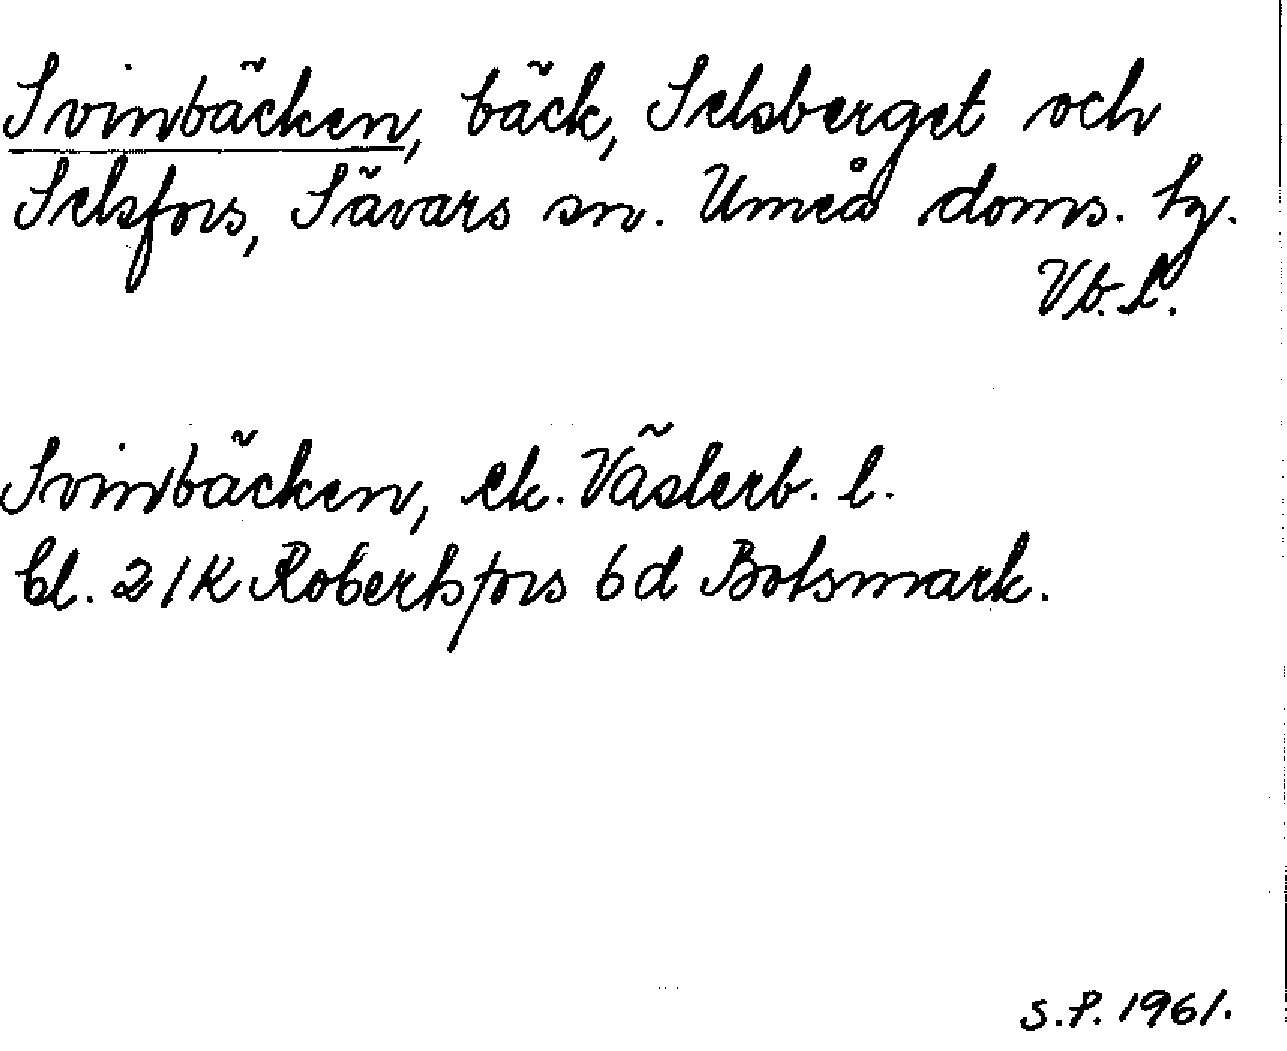 Svinbäcken, bäck, Selsberget och
Selsfors, Sävars sn. Umeå doms. tg.
Vb. l.
Svinbäcken, ek. Västerb. l.
bl. 21K Robertsfors 6d Botsmark.
S.P. 1961.